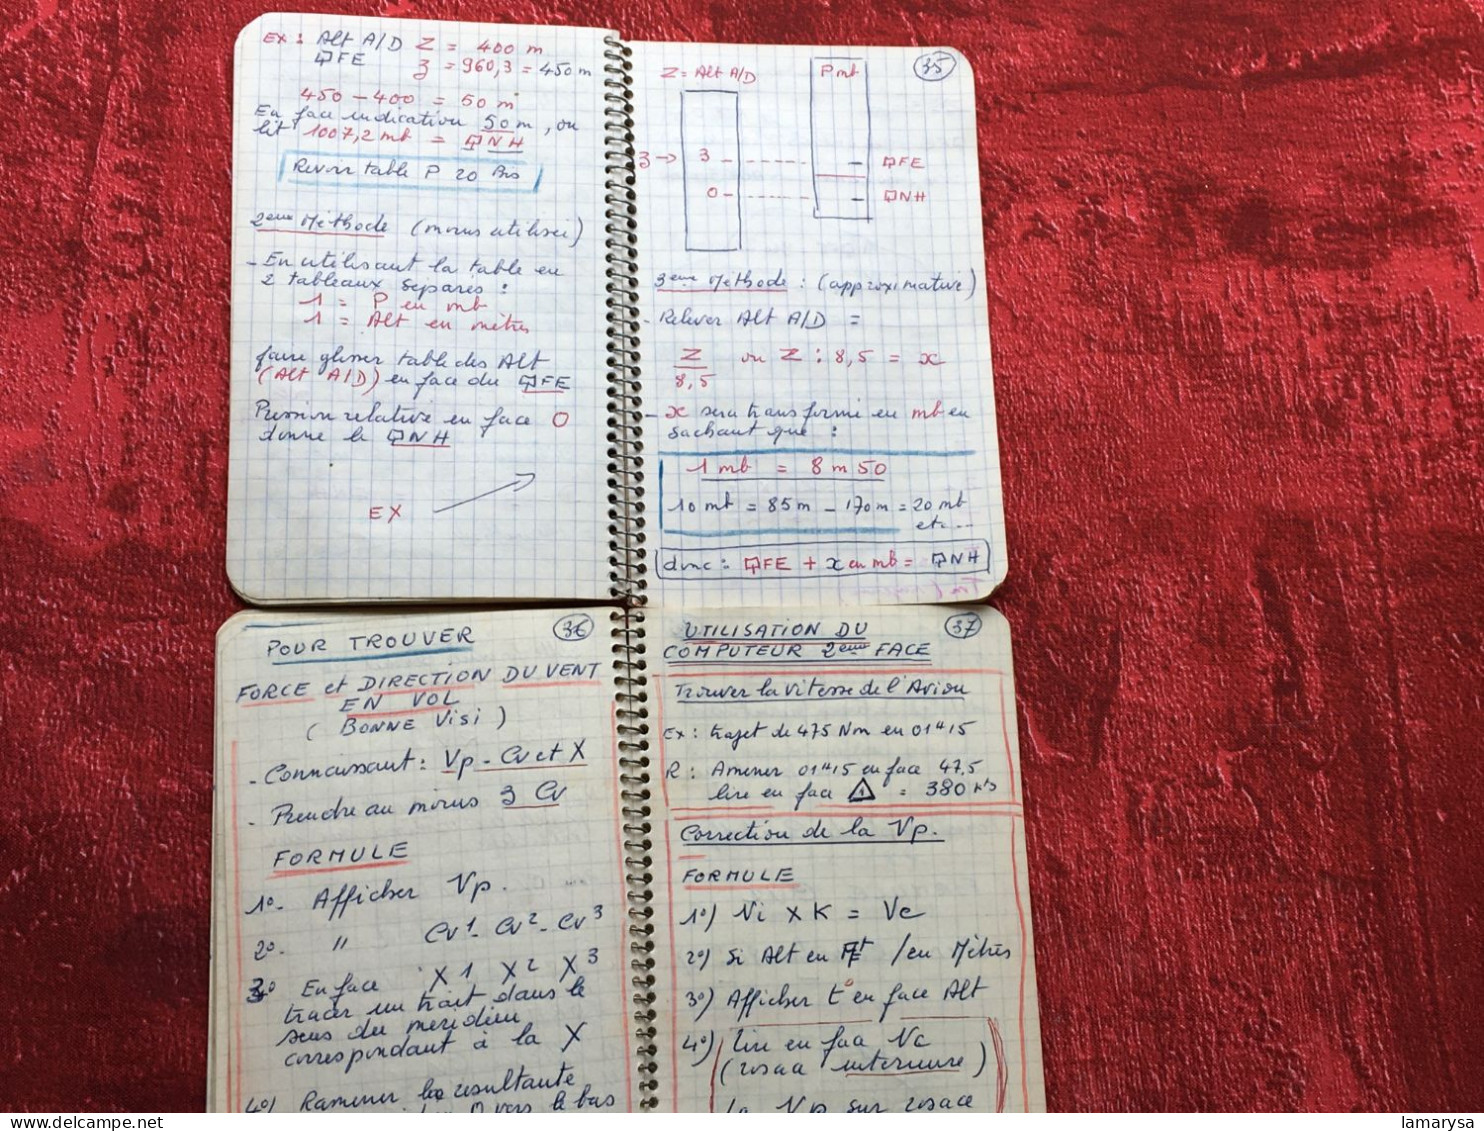 EX : Alt A/D Z = 400 m
QFE z = 960,3 = 450 m
450 - 400 = 50 m
En face indication 50 m, on
lit 1007,2 mb = QNH
Revoir table P 20 Bis
2eme Méthode (moins utilisée)
- En utilisant la table en
2 tableaux séparés :
1 = P en mb
1 = Alt en mètres
faire glisser table des Alt
(Alt A/D) en face du QFE
Pression relative en face 0
donne le QNH
EX
35
Z = Alt A/D P mb
3 → 3 - ------ - QFE
0 - ------ - QNH
3eme Méthode : (approximative)
- Relever Alt A/D =
Z/8,5 ou Z : 8,5 = x
- x sera transformé en mb en
sachant que :
1 mb = 8 m 50
10 mb = 85 m - 170 m = 20 mb
etc...
donc : QFE + x en mb = QNH
36
POUR TROUVER
FORCE et DIRECTION DU VENT
EN VOL
(BONNE Visi)
- Connaissant : Vp - Cv et X
- Prendre au moins 3 Cv
FORMULE
1° - Afficher Vp.
2° - " Cv1 - Cv2 - Cv3
3° En face X1 X2 X3
tracer un trait dans le
sens du meridien
correspondant à la X
4°) Ramener la résultante
0 vers le bas
37
UTILISATION DU
COMPUTEUR 2eme FACE
Trouver la vitesse de l'Avion
Ex : trajet de 475 Nm en 01H15
R : Amener 01H15 en face 47.5
lire en face △ = 380 kts
Correction de la Vp.
FORMULE
1°) Vi x K = Vc
2°) Si Alt en Ft / en Mètres
3°) Afficher t° en face Alt
4°) lire en face Vc
(rosace interieure)
la Vp sur rosace
lamarysa